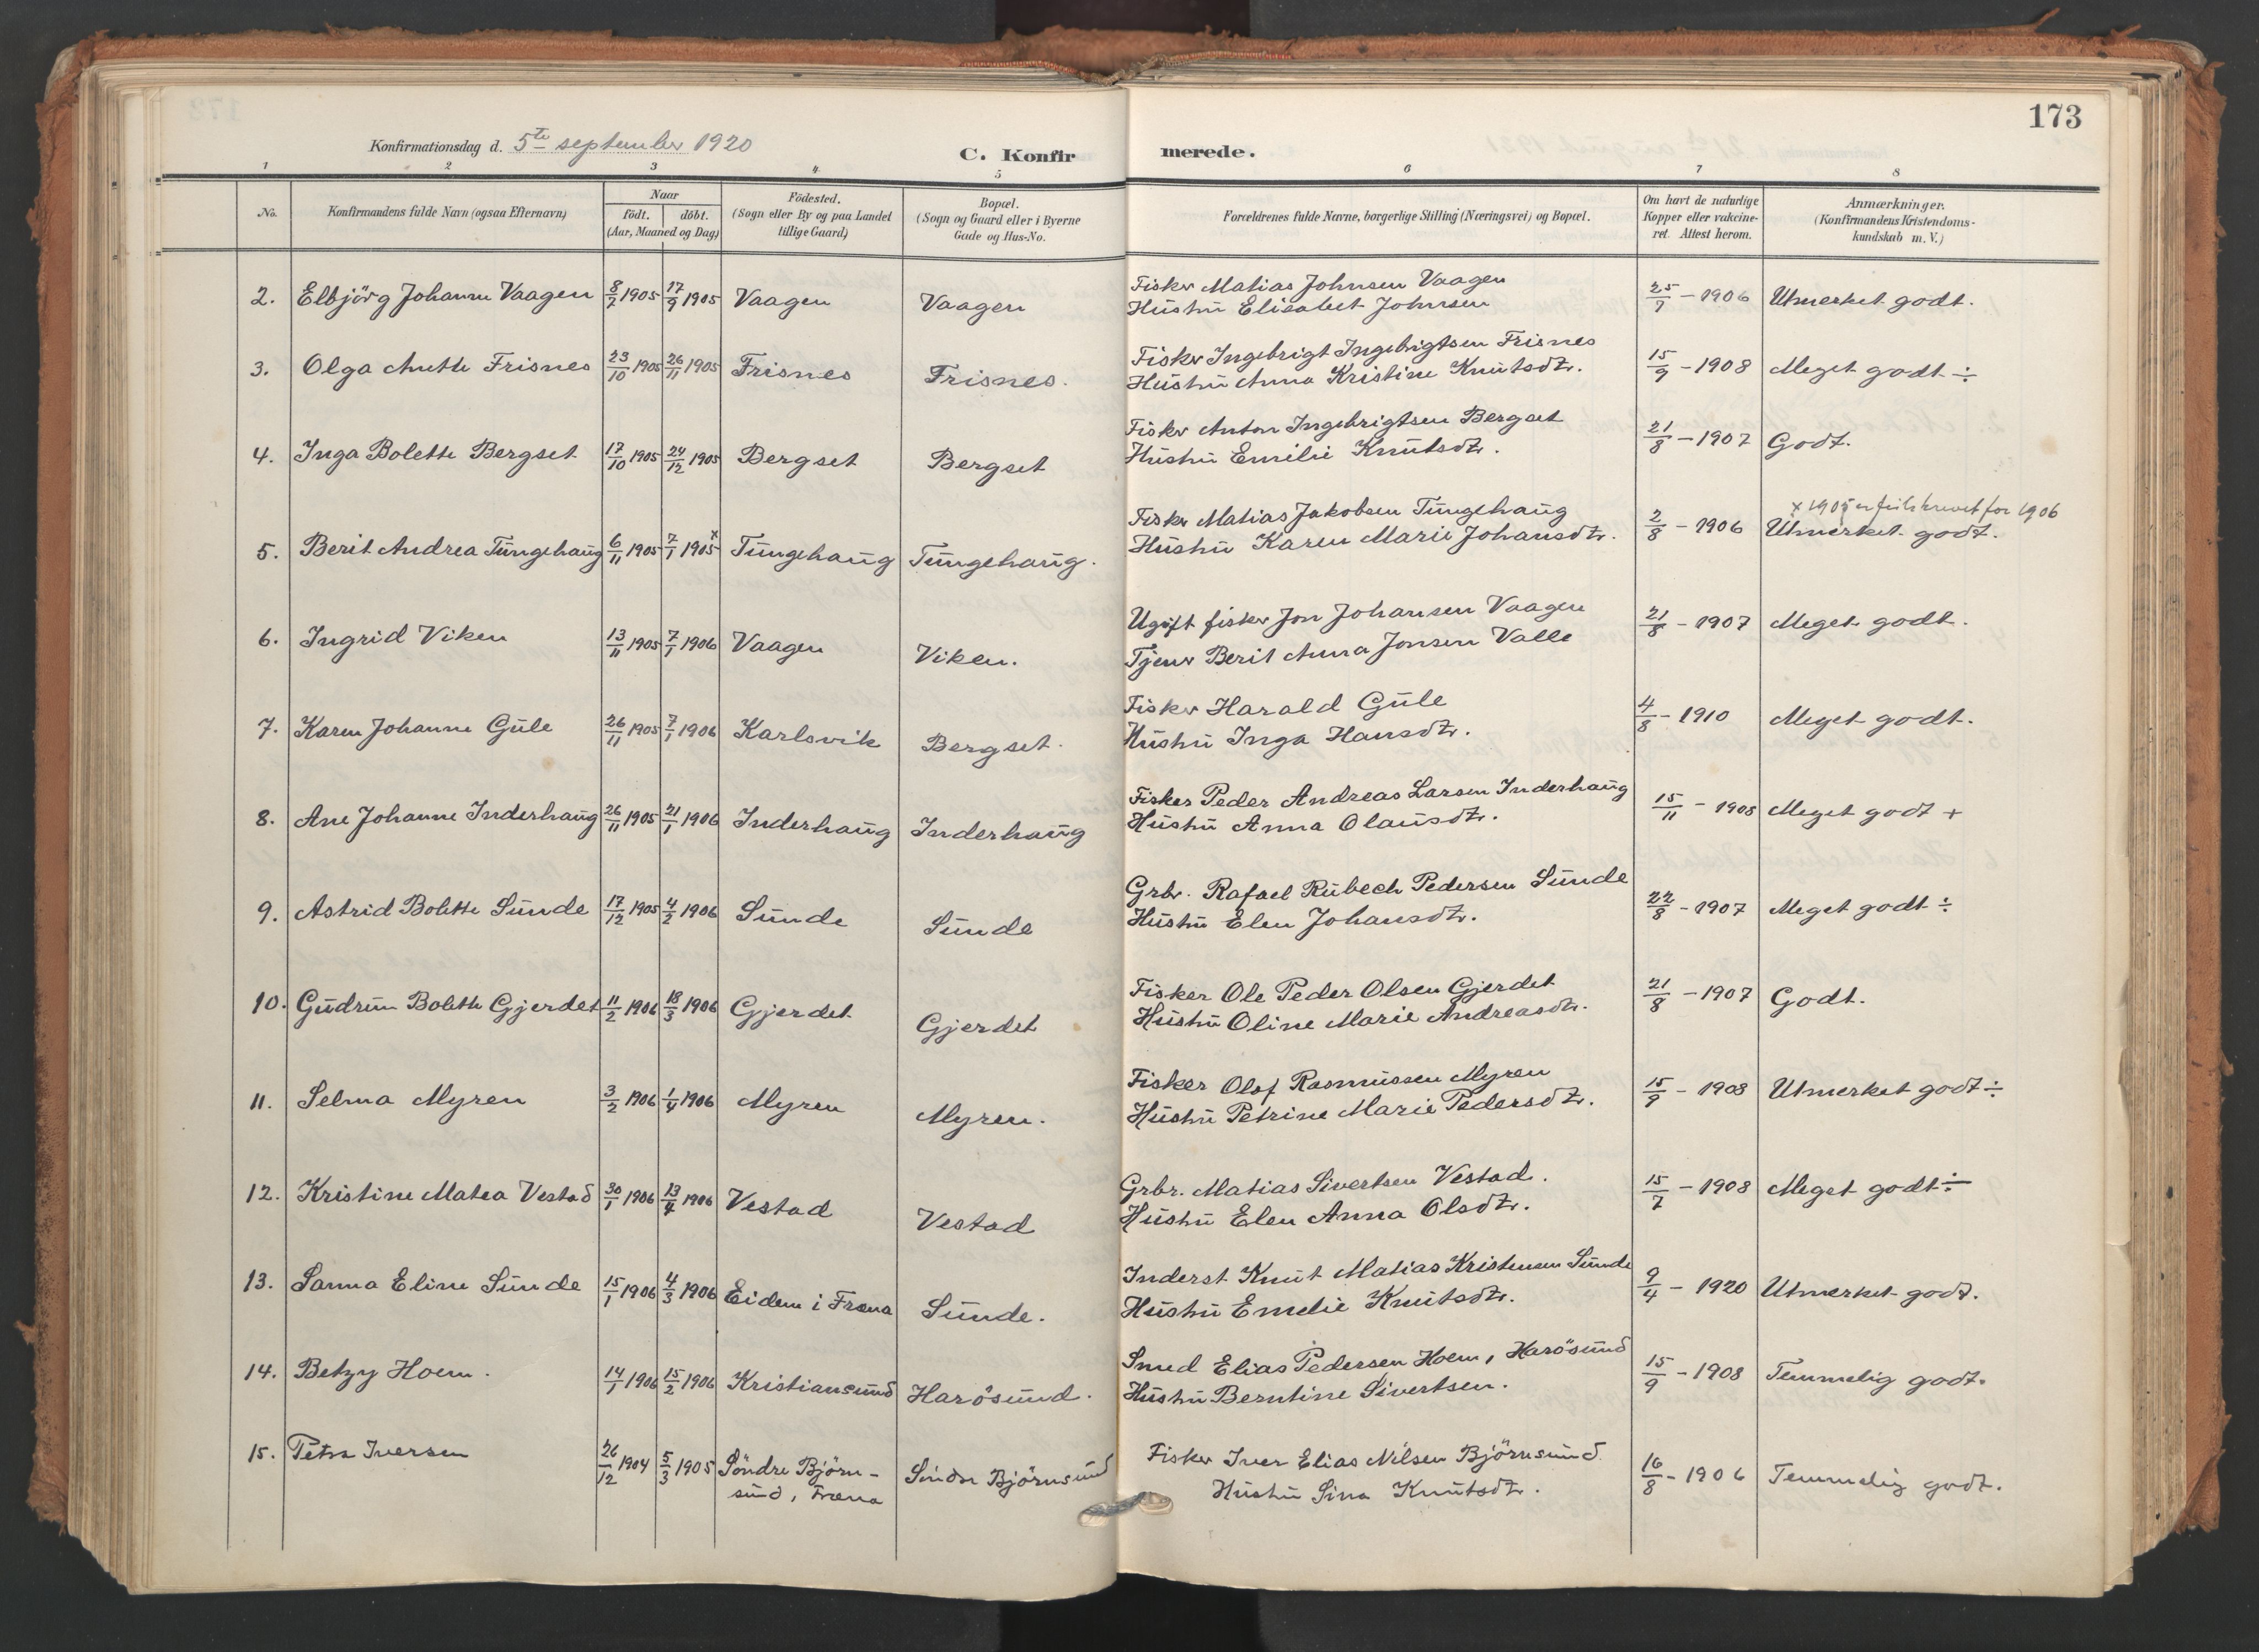 173
Konfirmationsdag d. 5te september 1920
C. Konfirmerede.
1 2 3 4 5 6 7 8
No.
Konfirmandens fulde Navn (ogsaa Efternavn)
Naar
födt. döbt.
(Aar, Maaned og Dag)
Födested.
(Sogn eller By og paa Landet
tillige Gaard)
Bopæl.
(Sogn og Gaard eller i Byerne
Gade og Hus-No.
Forældrenes fulde Navne, borgerlige Stilling (Næringsvei) og Bopæl.
Om havt de naturlige
Kopper eller vakcine-
ret. Attest herom.
Anmærkninger.
(Konfirmandens Kristendoms-
kundskab m. V.)
2. Elbjörg Johanne Vaagen 8/7 1905 17/9 1905 Vaagen Vaagen
Fisker Matias Johnsen Vaagen
Hustru Elisabet Johnsen
25/7 - 1906 Utmerket godt.
3. Olga Anette Frisnes 23/10 1905 26/11 1905 Frisnes Frisnes.
Fisker Ingebrigt Ingebrigtsen Frisnes
Hustru Anna Kristine Knutsdtr.
15/9 - 1908 Meget godt ÷
4. Inga Bolette Bergset 17/10 1905 24/12 1905 Bergset Bergset
Fisker Anton Ingebrigtsen Bergset
Hustru Emilie Knutsdtr.
21/8 - 1907 Godt.
5. Berit Andrea Tungehaug 6/11 1905 7/1 1905 x Tungehaug Tungehaug.
Fisker Matias Jakobsen Tungehaug
Hustru Karen Marie Johansdtr.
2/8 - 1906 x 1905 er feilskrevet for 1906
Utmerket godt.
6. Ingrid Viken 13/11 1905 7/1 1906 Vaagen Viken.
Ugift fisker Jon Johansen Vaagen
Tjener Berit Anna Jonsen Valle
21/8 - 1907 Meget godt.
7. Karen Johanne Gule 26/11 1905 7/1 1906 Karlsvik Bergset.
Fisker Harald Gule
Hustru Inga Hansdtr.
4/8 - 1910 Meget godt.
8. Ane Johanne Inderhaug 26/11 1905 21/1 1906 Inderhaug Inderhaug
Fisker Peder Andreas Larsen Inderhaug
Hustru Anna Olausdtr.
15/11 - 1908 Meget godt +
9. Astrid Bolette Sunde 17/12 1905 4/2 1906 Sunde Sunde
Grbr. Rafael Rubech Pedersen Sunde
Hustru Elen Johansdtr.
22/8 - 1907 Meget godt ÷
10. Gudrun Bolette Gjerdet 11/2 1906 18/3 1906 Gjerdet Gjerdet
Fisker Ole Peder Olsen Gjerdet
Hustru Oline Marie Andreasdtr.
21/8 - 1907 Godt.
11. Selma Myren 3/2 1906 1/4 1906 Myren Myren.
Fisker Olof Rasmussen Myren
Hustru Petrine Marie Pedersdtr.
15/9 - 1908 Utmerket godt ÷
12. Kristine Matea Vestad 30/1 1906 13/4 1906 Vestad Vestad
Grbr. Matias Sivertsen Vestad.
Hustru Elen Anna Olsdtr.
15/7 - 1908 Meget godt ÷
13. Sanna Eline Sunde 15/1 1906 4/3 1906 Eidem i Fræna Sunde.
Inderst Knut Matias Kristensen Sunde
Hustru Emelie Knutsdtr.
9/4 - 1920 Utmerket godt.
14. Betzy Hoem. 14/1 1906 15/2 1906 Kristiansund Harösund.
Smed Elias Pedersen Hoem, Harösund
Hustru Berntine Sivertsen.
15/9 - 1908 Temmelig godt.
15. Petra Iversen 26/12 1904 5/3 1905 Söndre Björn-
sund, Fræna
Söndre Björnsund
Fisker Iver Elias Nilsen Björnsund.
Hustru Sina Knutsdtr.
16/8 - 1906 Temmelig godt.